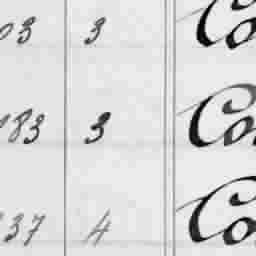 03 3 Co
83 3 Co
37 4 Co